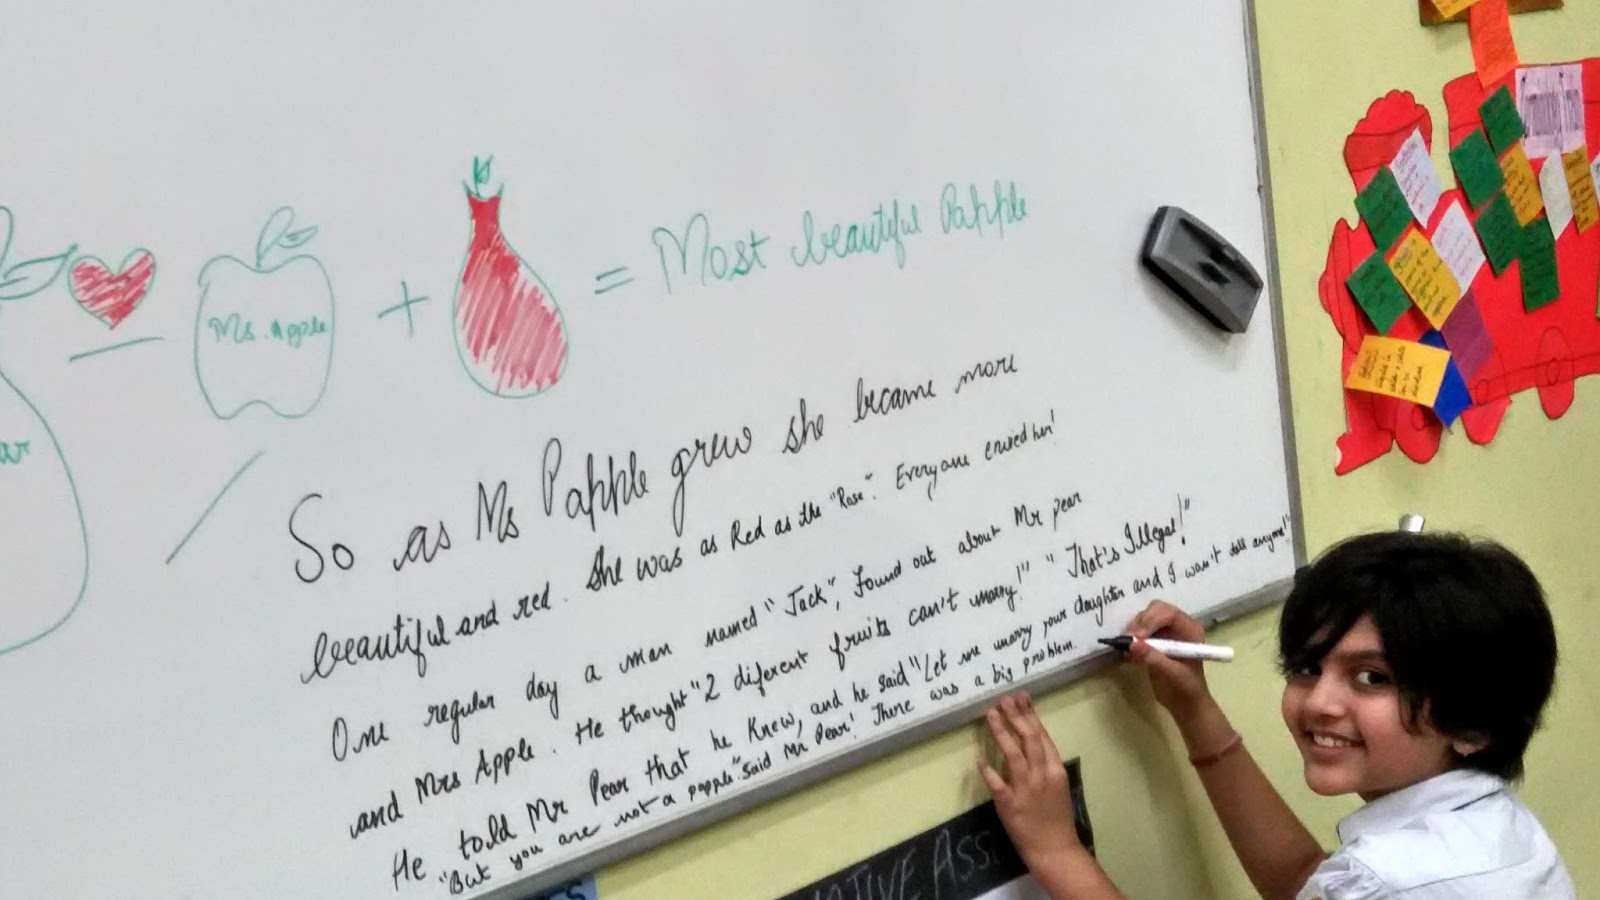 Ms. Apple
+
= Most beautiful Papple
ar
So as Ms Papple grew she became more
beautiful and red. She was as Red as the "Rose". Everyone envied her!
One regular day a man named "Jack", Found out about Mr pear
and Mrs Apple. He thought "2 diferent fruits can't marry!" "That's Illegal!"
He told Mr Pear that he Knew, and he said "Let me marry your daughter and I wan't tell anyone!"
"But you are not a papple". said Mr Pear! There was a big problem.
ATIVE ASS